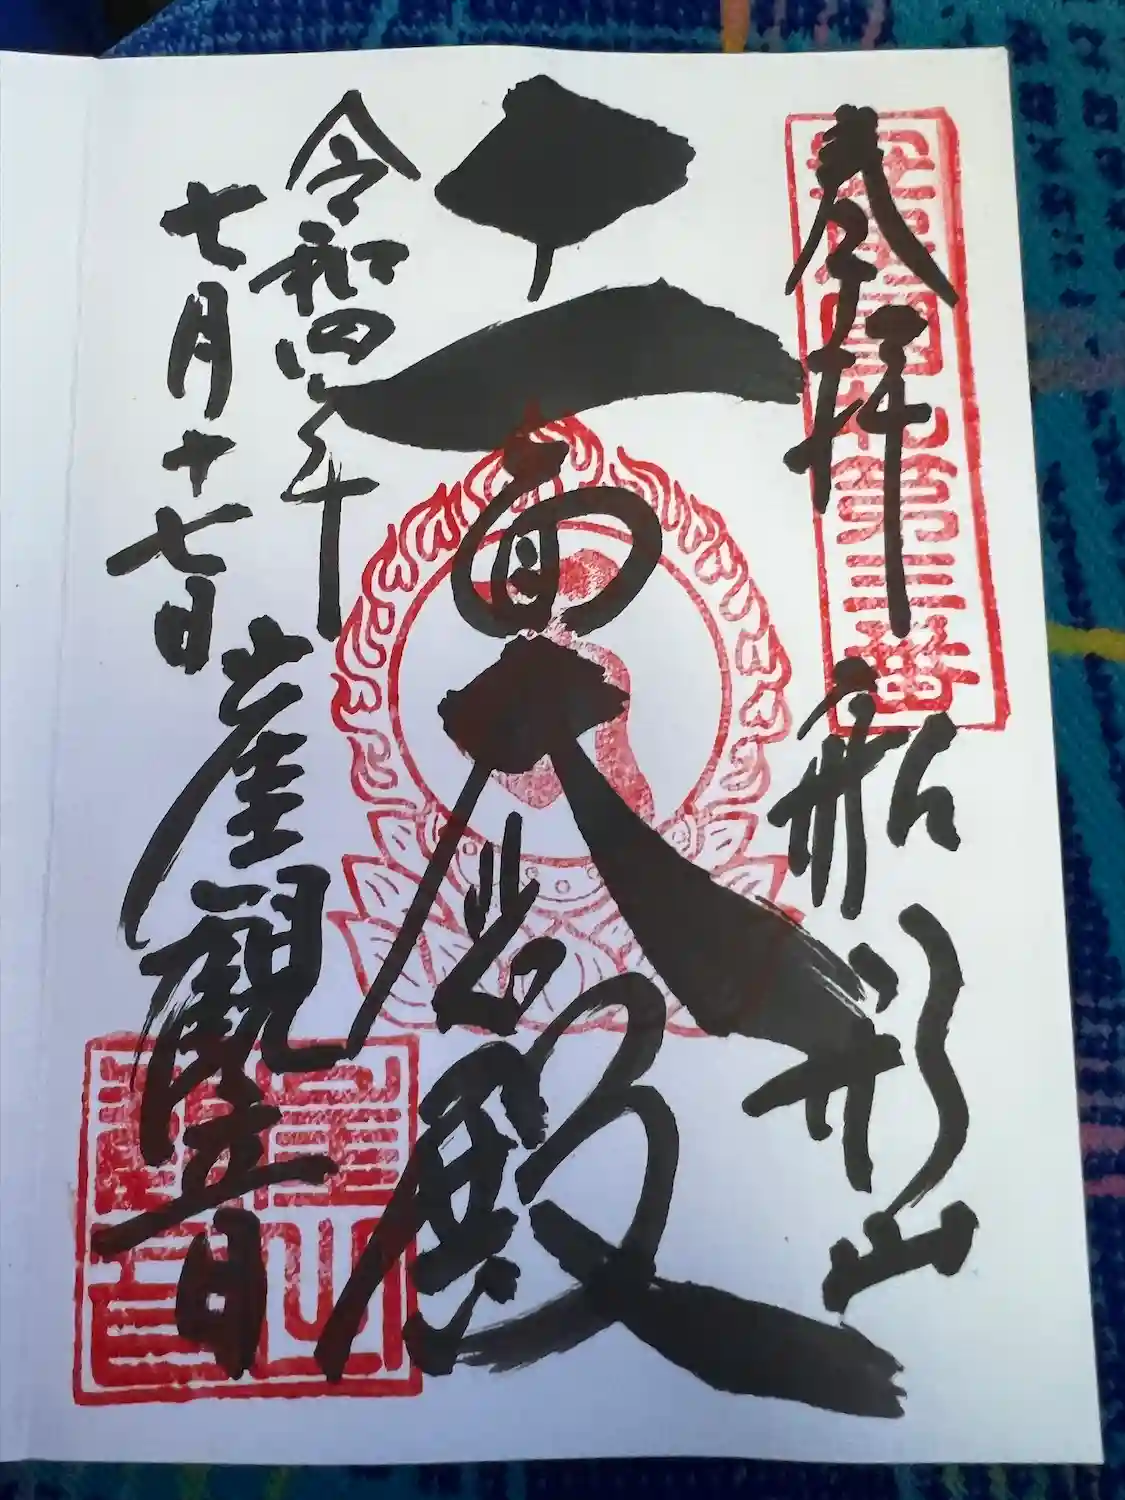 安房国札第三番
奉拝
船形山
十一面大悲殿
令和四年
七月十七日
崖観音